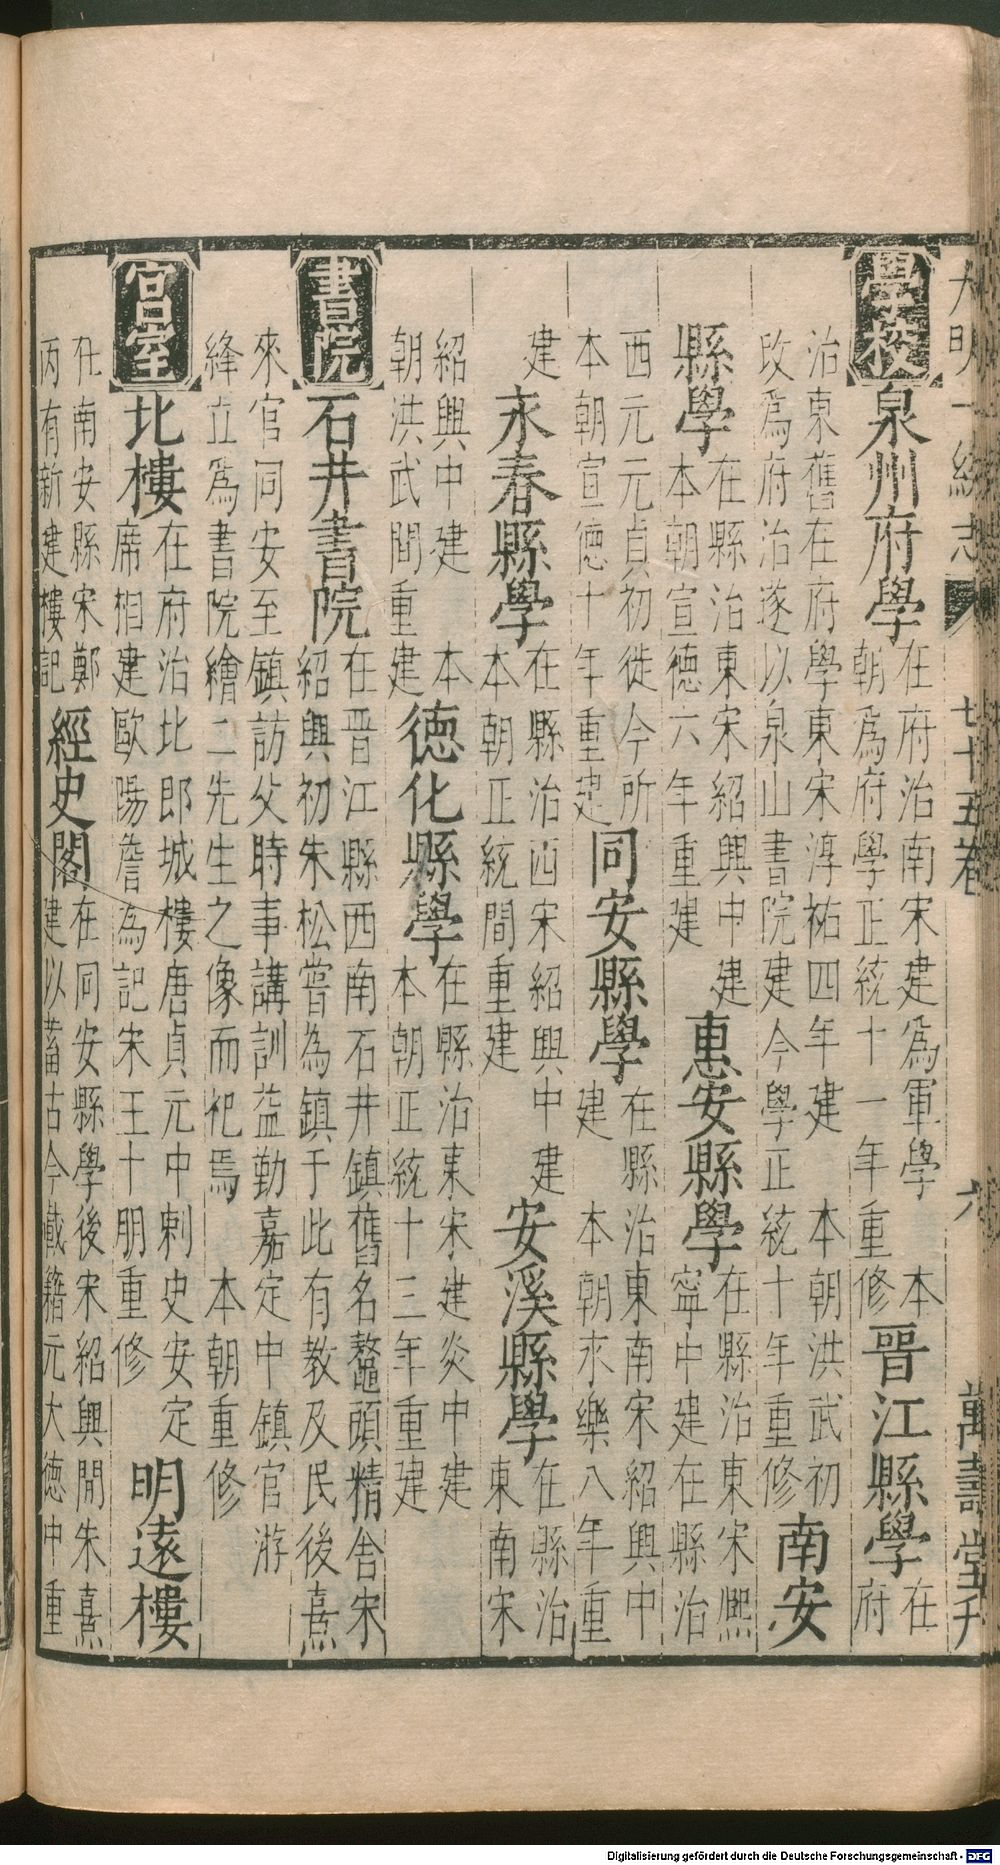 大明一統志 七十五卷 六 萬壽堂刋
學校 泉州府學 在府治南宋建為軍學 本
朝為府學正統十一年重修 晉江縣學 在府
治東舊在府學東宋淳祐四年建 本朝洪武初
改為府治遂以泉山書院建今學正統十年重修 南安
縣學 在縣治東宋紹興中建
本朝宣德六年重建 惠安縣學 在縣治東宋熙
寧中建在縣治
西元元貞初徙今所
本朝宣德十年重建 同安縣學 在縣治東南宋紹興中
建 本朝永樂八年重
建 永春縣學 在縣治西宋紹興中建
本朝正統間重建 安溪縣學 在縣治
東南宋
紹興中建 本
朝洪武間重建 德化縣學 在縣治東宋建炎中建
本朝正統十三年重建
書院 石井書院 在晉江縣西南石井鎮舊名鰲頭精舍宋
紹興初朱松嘗為鎮于此有教及民後熹
來官同安至鎮訪父時事講訓益勤嘉定中鎮官游
絳立為書院繪二先生之像而祀焉 本朝重修
宮室 北樓 在府治北郎城樓唐貞元中刺史安定
席相建歐陽詹為記宋王十朋重修 明遠樓
在南安縣宋鄭
丙有新建樓記 經史閣 在同安縣學後宋紹興間朱熹
建以蓄古今載籍元大德中重
Digitalisierung gefördert durch die Deutsche Forschungsgemeinschaft - DFG